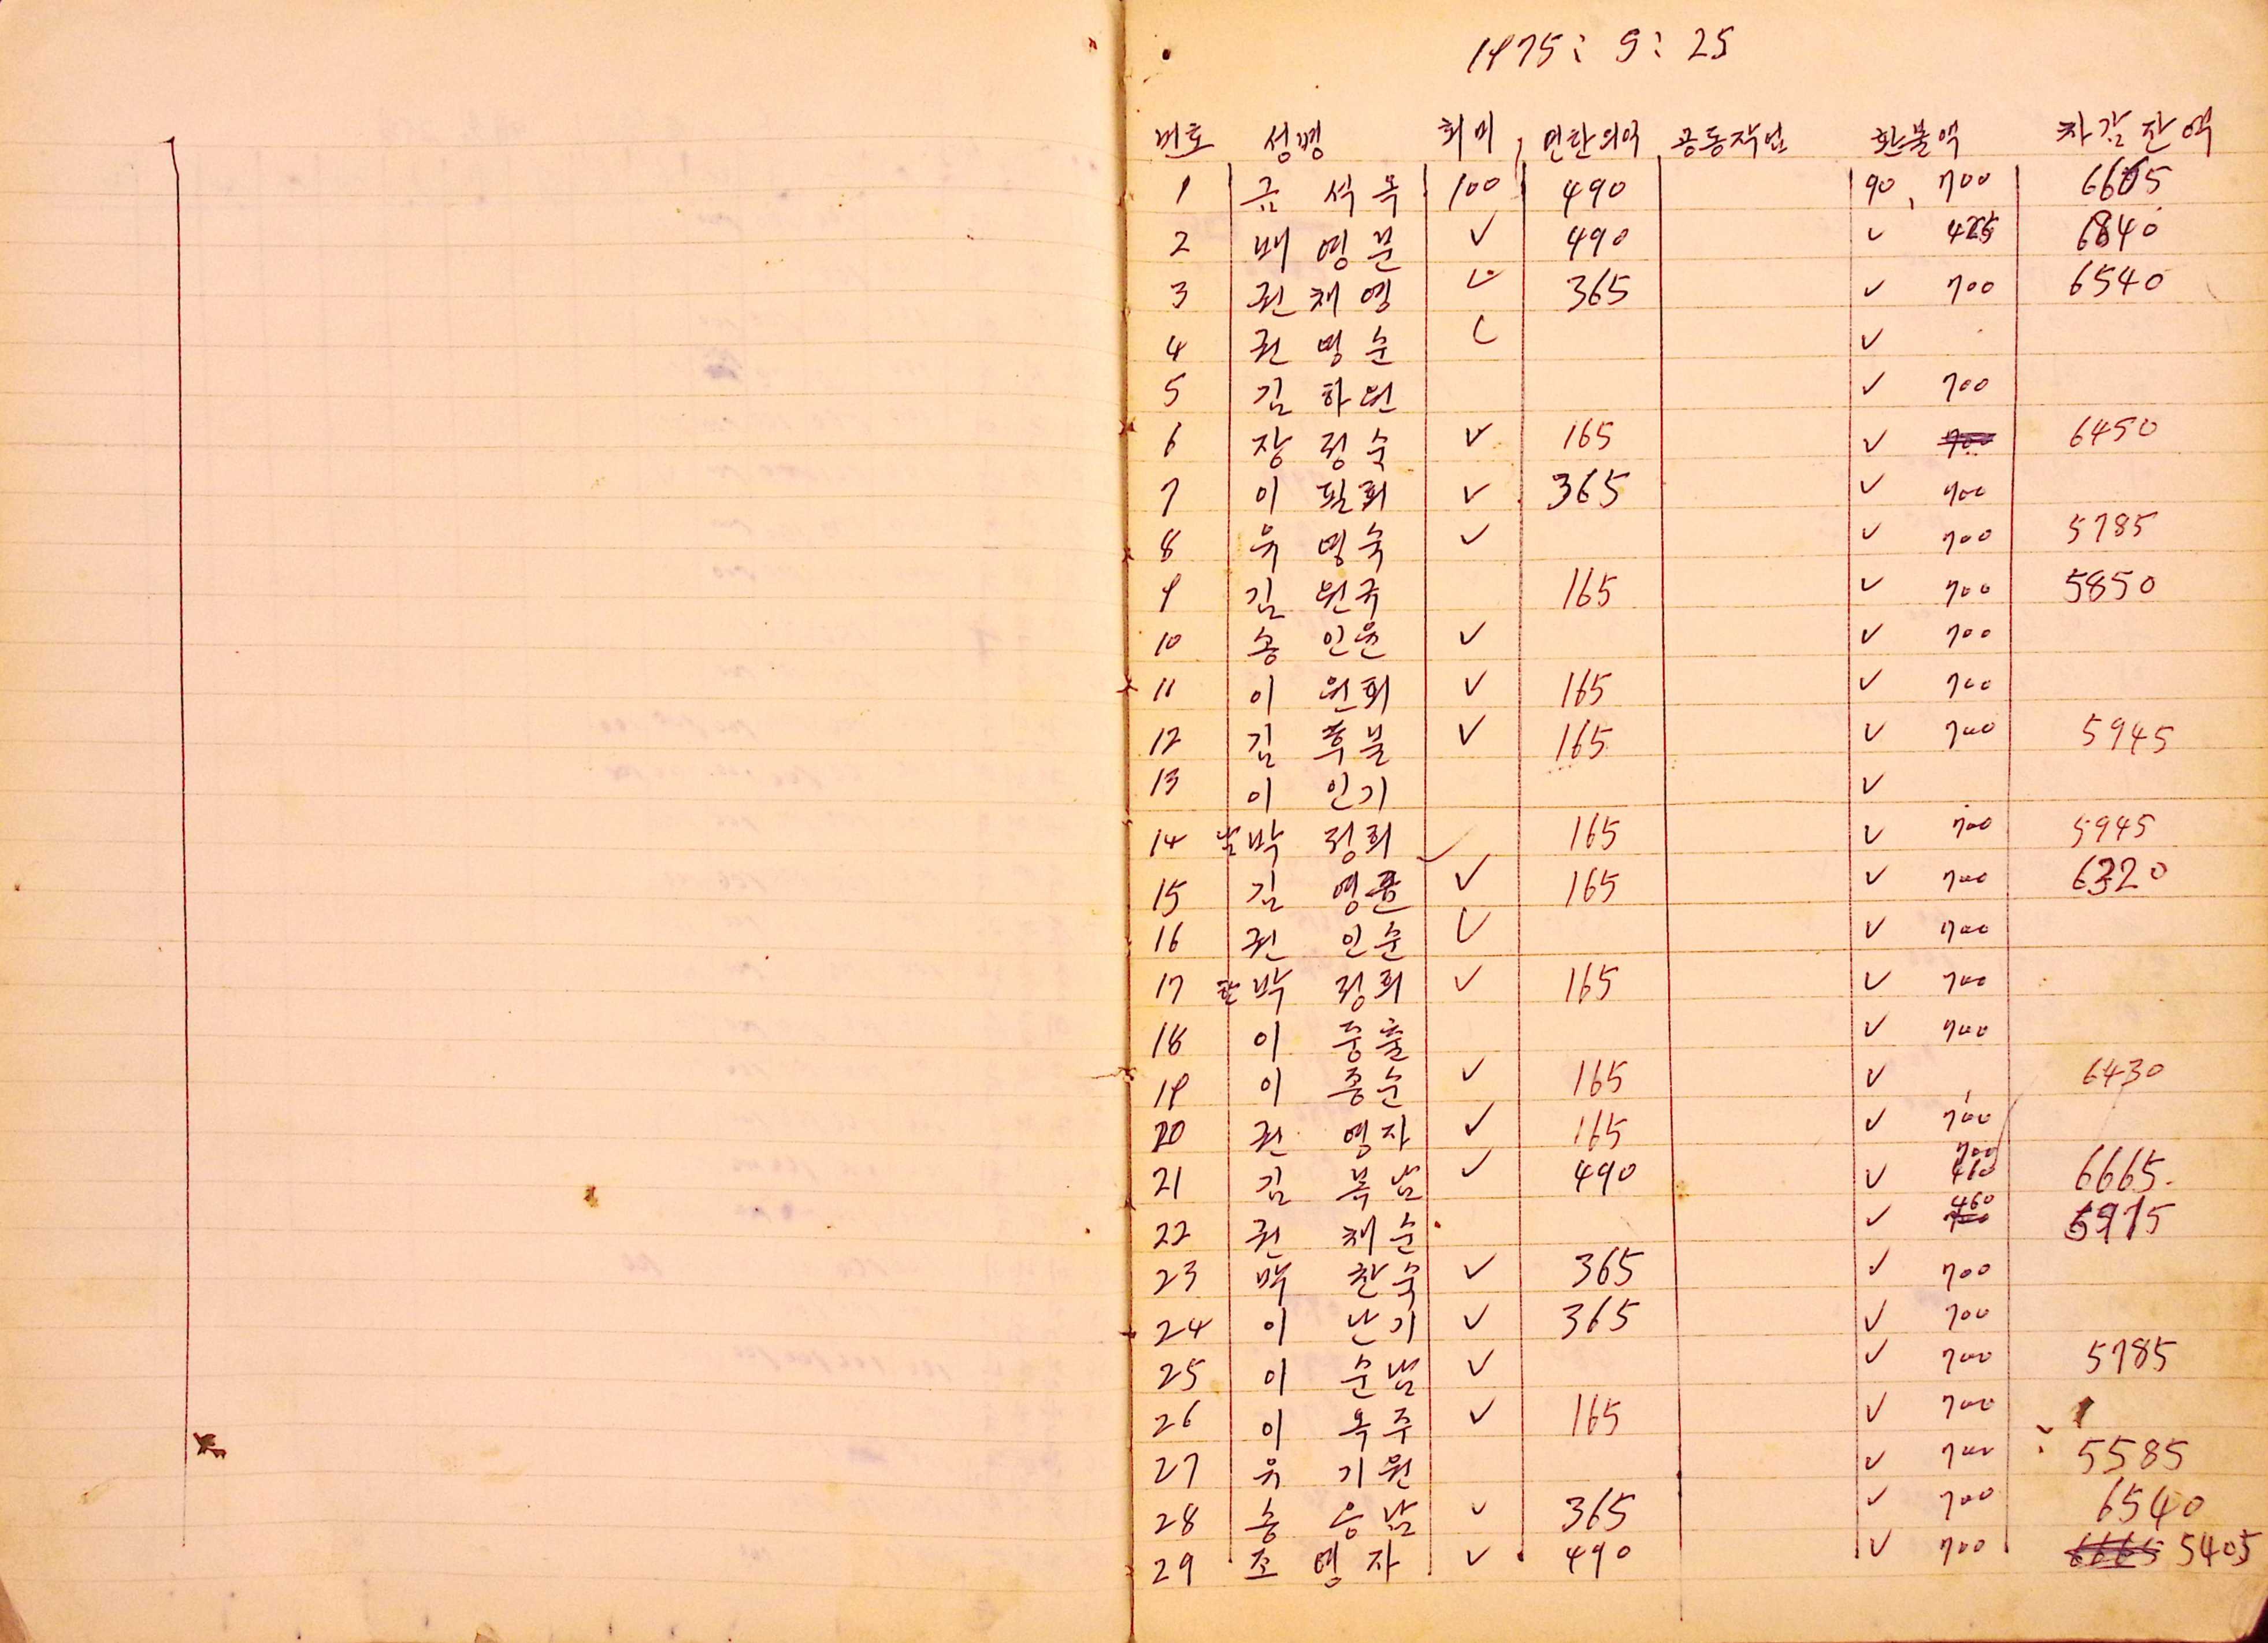 1975 : 9 : 25
번호 성명 회비 연탄의역 공동작업 환불액 차감잔액
1 금석옥 100 490 90, 700 6605
2 배영분 ✓ 490 ✓ 425 6840
3 권채영 ✓ 365 ✓ 700 6540
4 권명순 ✓ ✓
5 김하원 ✓ 700
6 장정숙 ✓ 165 ✓ 700 6450
7 이필회 ✓ 365 ✓ 700
8 유명숙 ✓ ✓ 700 5785
9 김원국 165 ✓ 700 5850
10 송인운 ✓ ✓ 700
11 이원회 ✓ 165 ✓ 700
12 김후불 ✓ 165 ✓ 700 5945
13 이인기 ✓
14 박정희 ✓ 165 ✓ 700 5945
15 김영 ✓ 165 ✓ 700 6320
16 권인순 ✓ ✓ 700
17 박정희 ✓ 165 ✓ 700
18 이중출 ✓ 700
19 이종순 ✓ 165 ✓ 6430
20 권영자 ✓ 165 ✓ 700
21 김복남 ✓ 490 ✓ 700 460 6665
22 권채순 ✓ 460 700 5975
23 박찬숙 ✓ 365 ✓ 700
24 이난기 ✓ 365 ✓ 700
25 이순남 ✓ ✓ 700 5785
26 이옥주 ✓ 165 ✓ 700
27 유기원 ✓ 700 5585
28 송응남 ✓ 365 ✓ 700 6540
29 조영자 ✓ 490 ✓ 700 6665 5405